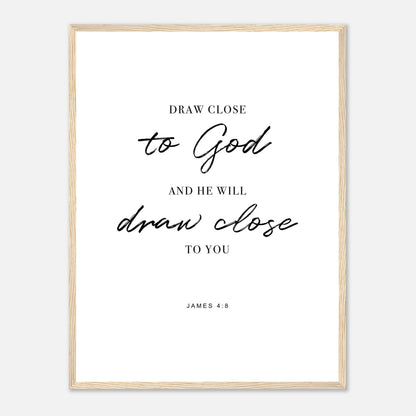 DRAW CLOSE
to God
AND HE WILL
draw close
TO YOU
JAMES 4:8